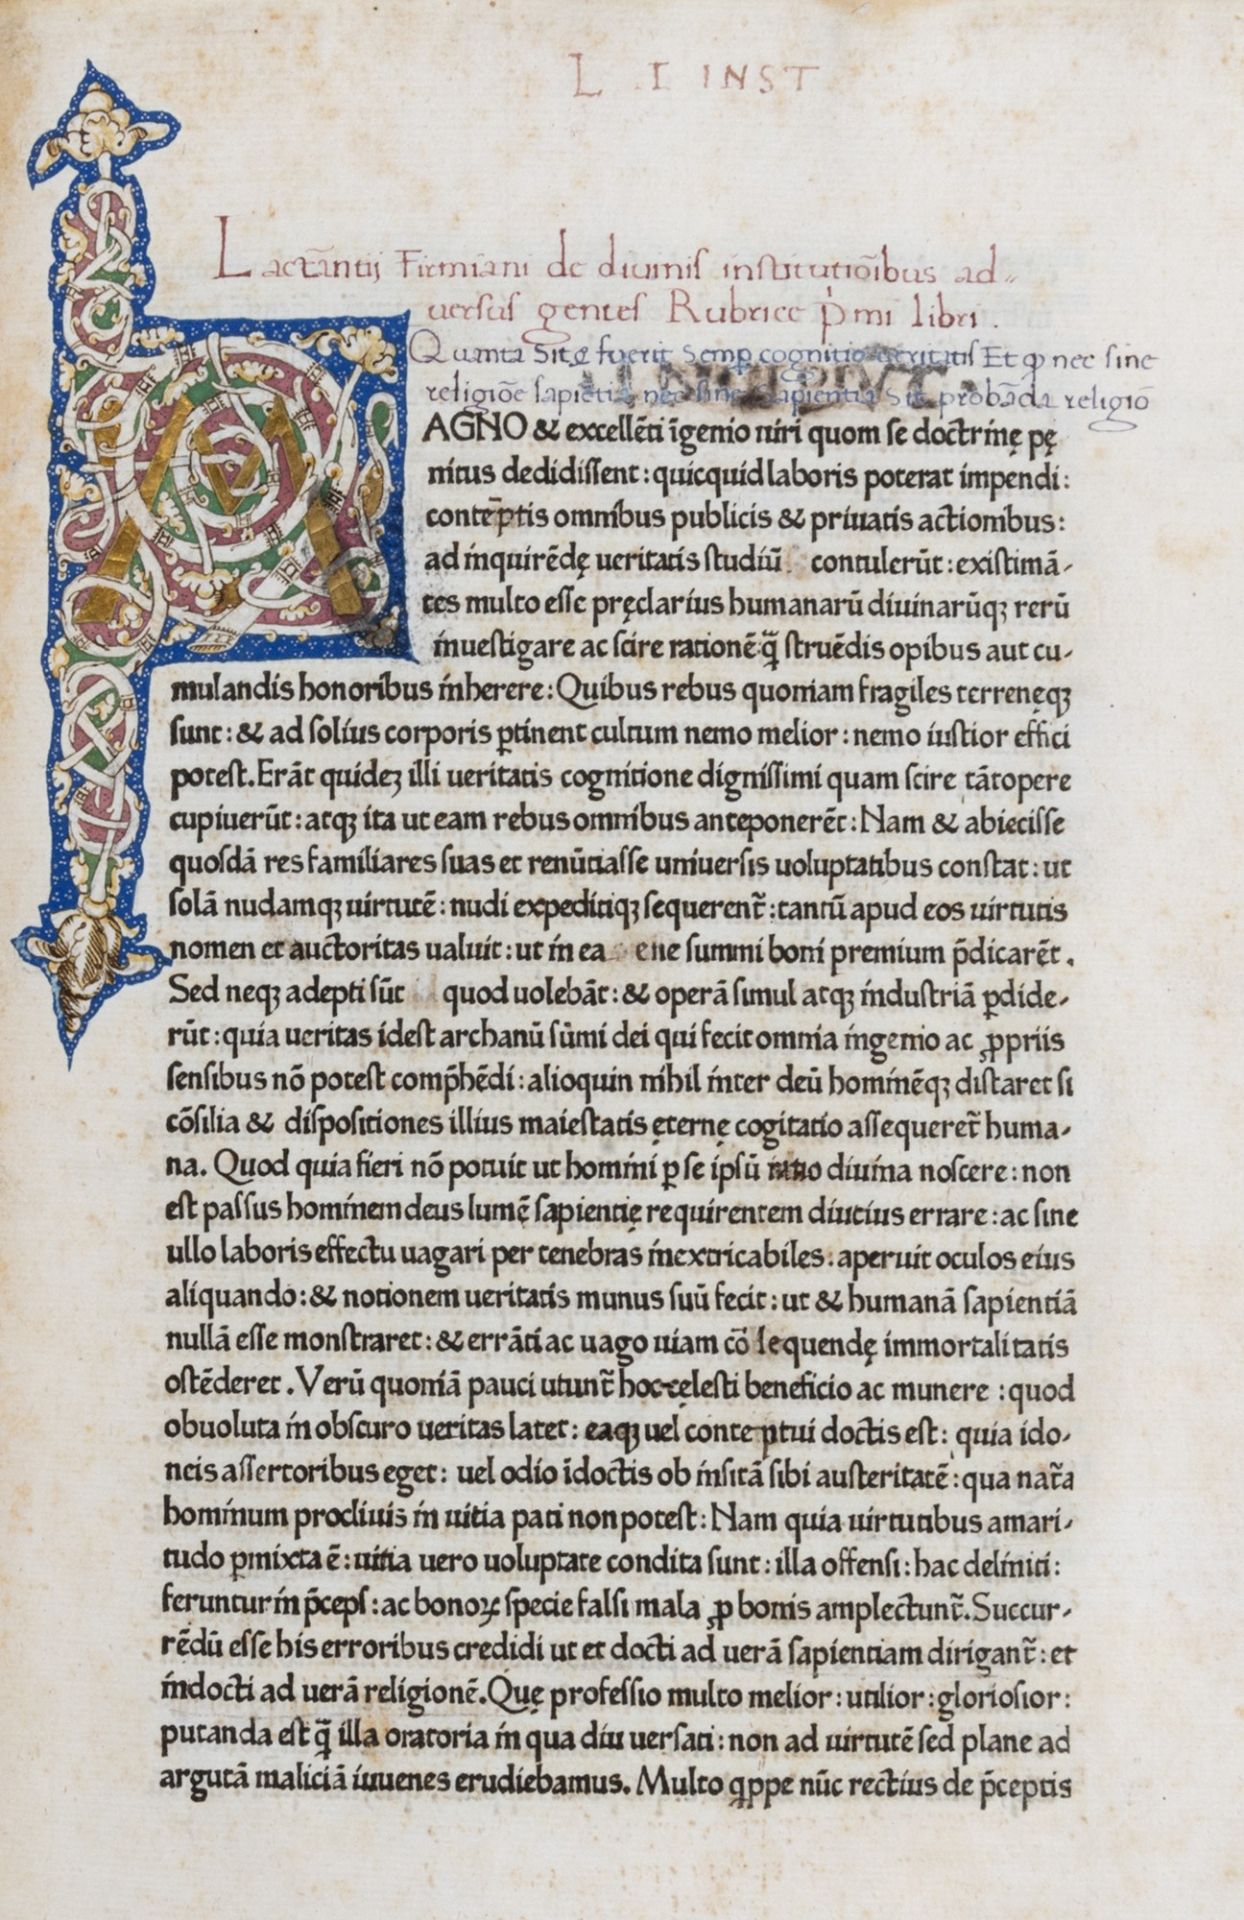 L . I INST
Lactãntij Firmiani de diuinis institutiõibus ad=
uersus gentes Rubrice p̍mi libri.
Quanta Sit & fuerit Semp̲ cognitio ueritatis Et q̲ nec sine
religiõe sapiẽtia nec sine Sapientia Sit probãda religiõ
M
AGNO & excellẽti ĩgenio uiri quom se doctrinę pę
nitus dedidissent: quicquid laboris poterat impendi:
contẽptis omnibus publicis & priuatis actionibus:
ad inquirẽdę ueritatis studiũ contulerũt: existimã-
tes multo esse pręclarius humanarũ diuinarũqꝫ rerũ
inuestigare ac scire rationẽ q̃ struẽdis opibus aut cu-
mulandis honoribus inherere: Quibus rebus quoniam fragiles terrenęqꝫ
sunt: & ad solius corporis ꝑtinent cultum nemo melior: nemo iustior effici
potest. Erãt quideꝫ illi ueritatis cognitione dignissimi quam scire tãtopere
cupiuerũt: atqꝫ ita ut eam rebus omnibus anteponerẽt: Nam & abiecisse
quosdã res familiares suas et renũtiasse uniuersis uoluptatibus constat: ut
solã nudamqꝫ uirtutẽ: nudi expeditiqꝫ sequerent̃: tantũ apud eos uirtutis
nomen et auctoritas ualuit: ut in ea ene summi boni premium p̃dicarẽt.
Sed neqꝫ adepti sũt quod uolebãt: & operã simul atqꝫ industriã ꝑdide-
rũt: quia ueritas idest archanũ sũmi dei qui fecit omnia ingenio ac ꝓpriis
sensibus nõ potest comp̃hẽdi: alioquin nihil inter deũ hominẽqꝫ distaret si
cõsilia & dispositiones illius maiestatis ęternę cogitatio assequeret̃ huma-
na. Quod quia fieri nõ potuit ut homini ꝑ se ipsũ diuina noscere: non
est passus hominem deus lumẽ sapientię requirentem diutius errare: ac sine
ullo laboris effectu uagari per tenebras inextricabiles. aperuit oculos eius
aliquando: & notionem ueritatis munus suũ fecit: ut & humanã sapientiã
nullã esse monstraret: & errãti ac uago uiam cõsequendę immortalitatis
ostẽderet. Verũ quoniã pauci utunt̃ hoc cęlesti beneficio ac munere: quod
obuoluta in obscuro ueritas latet: eaqꝫ uel contemptui doctis est: quia ido-
neis assertoribus eget: uel odio ĩdoctis ob insitã sibi austeritatẽ: qua nat̃a
hominum procliuis in uitia pati non potest: Nam quia uirtutibus amari-
tudo ꝑmixta ẽ: uitia uero uoluptate condita sunt: illa offensi: hac deliniti:
feruntur in p̃ceps: ac bonoꝝ specie falsi mala ꝓ bonis amplectunt̃. Succur-
rẽdũ esse his erroribus credidi ut et docti ad uerã sapientiam dirigant̃: et
indocti ad uerã religionẽ. Quę professio multo melior: utilior: gloriosior:
putanda est q̃ illa oratoria in qua diu uersati: non ad uirtutẽ sed plane ad
argutã maliciã iuuenes erudiebamus. Multo q̍ppe nũc rectius de p̃ceptis